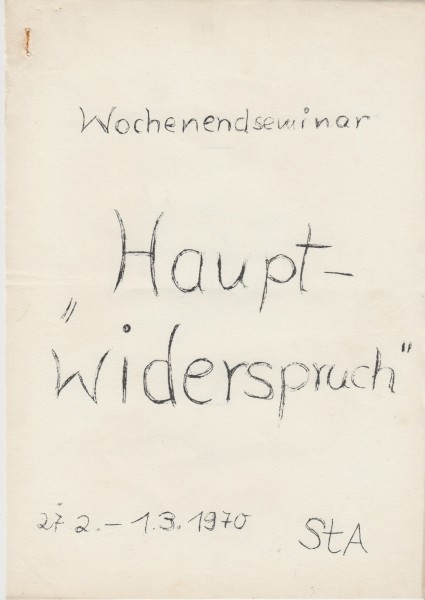 Wochenendseminar
Haupt-
„Widerspruch"
27 2.-1.3.1970
StA